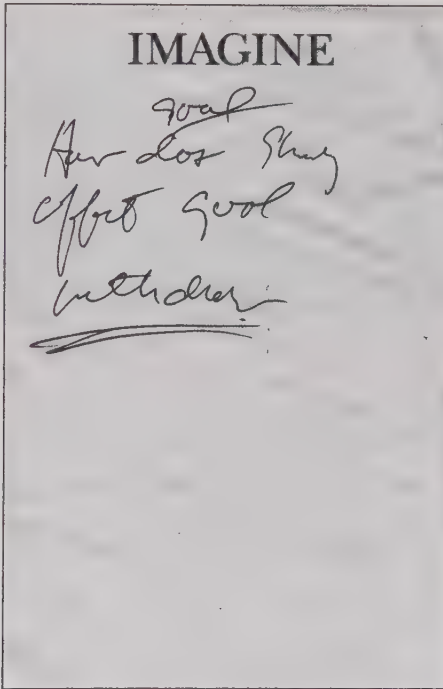 IMAGINE
goal
How does
effect goal
withdraw